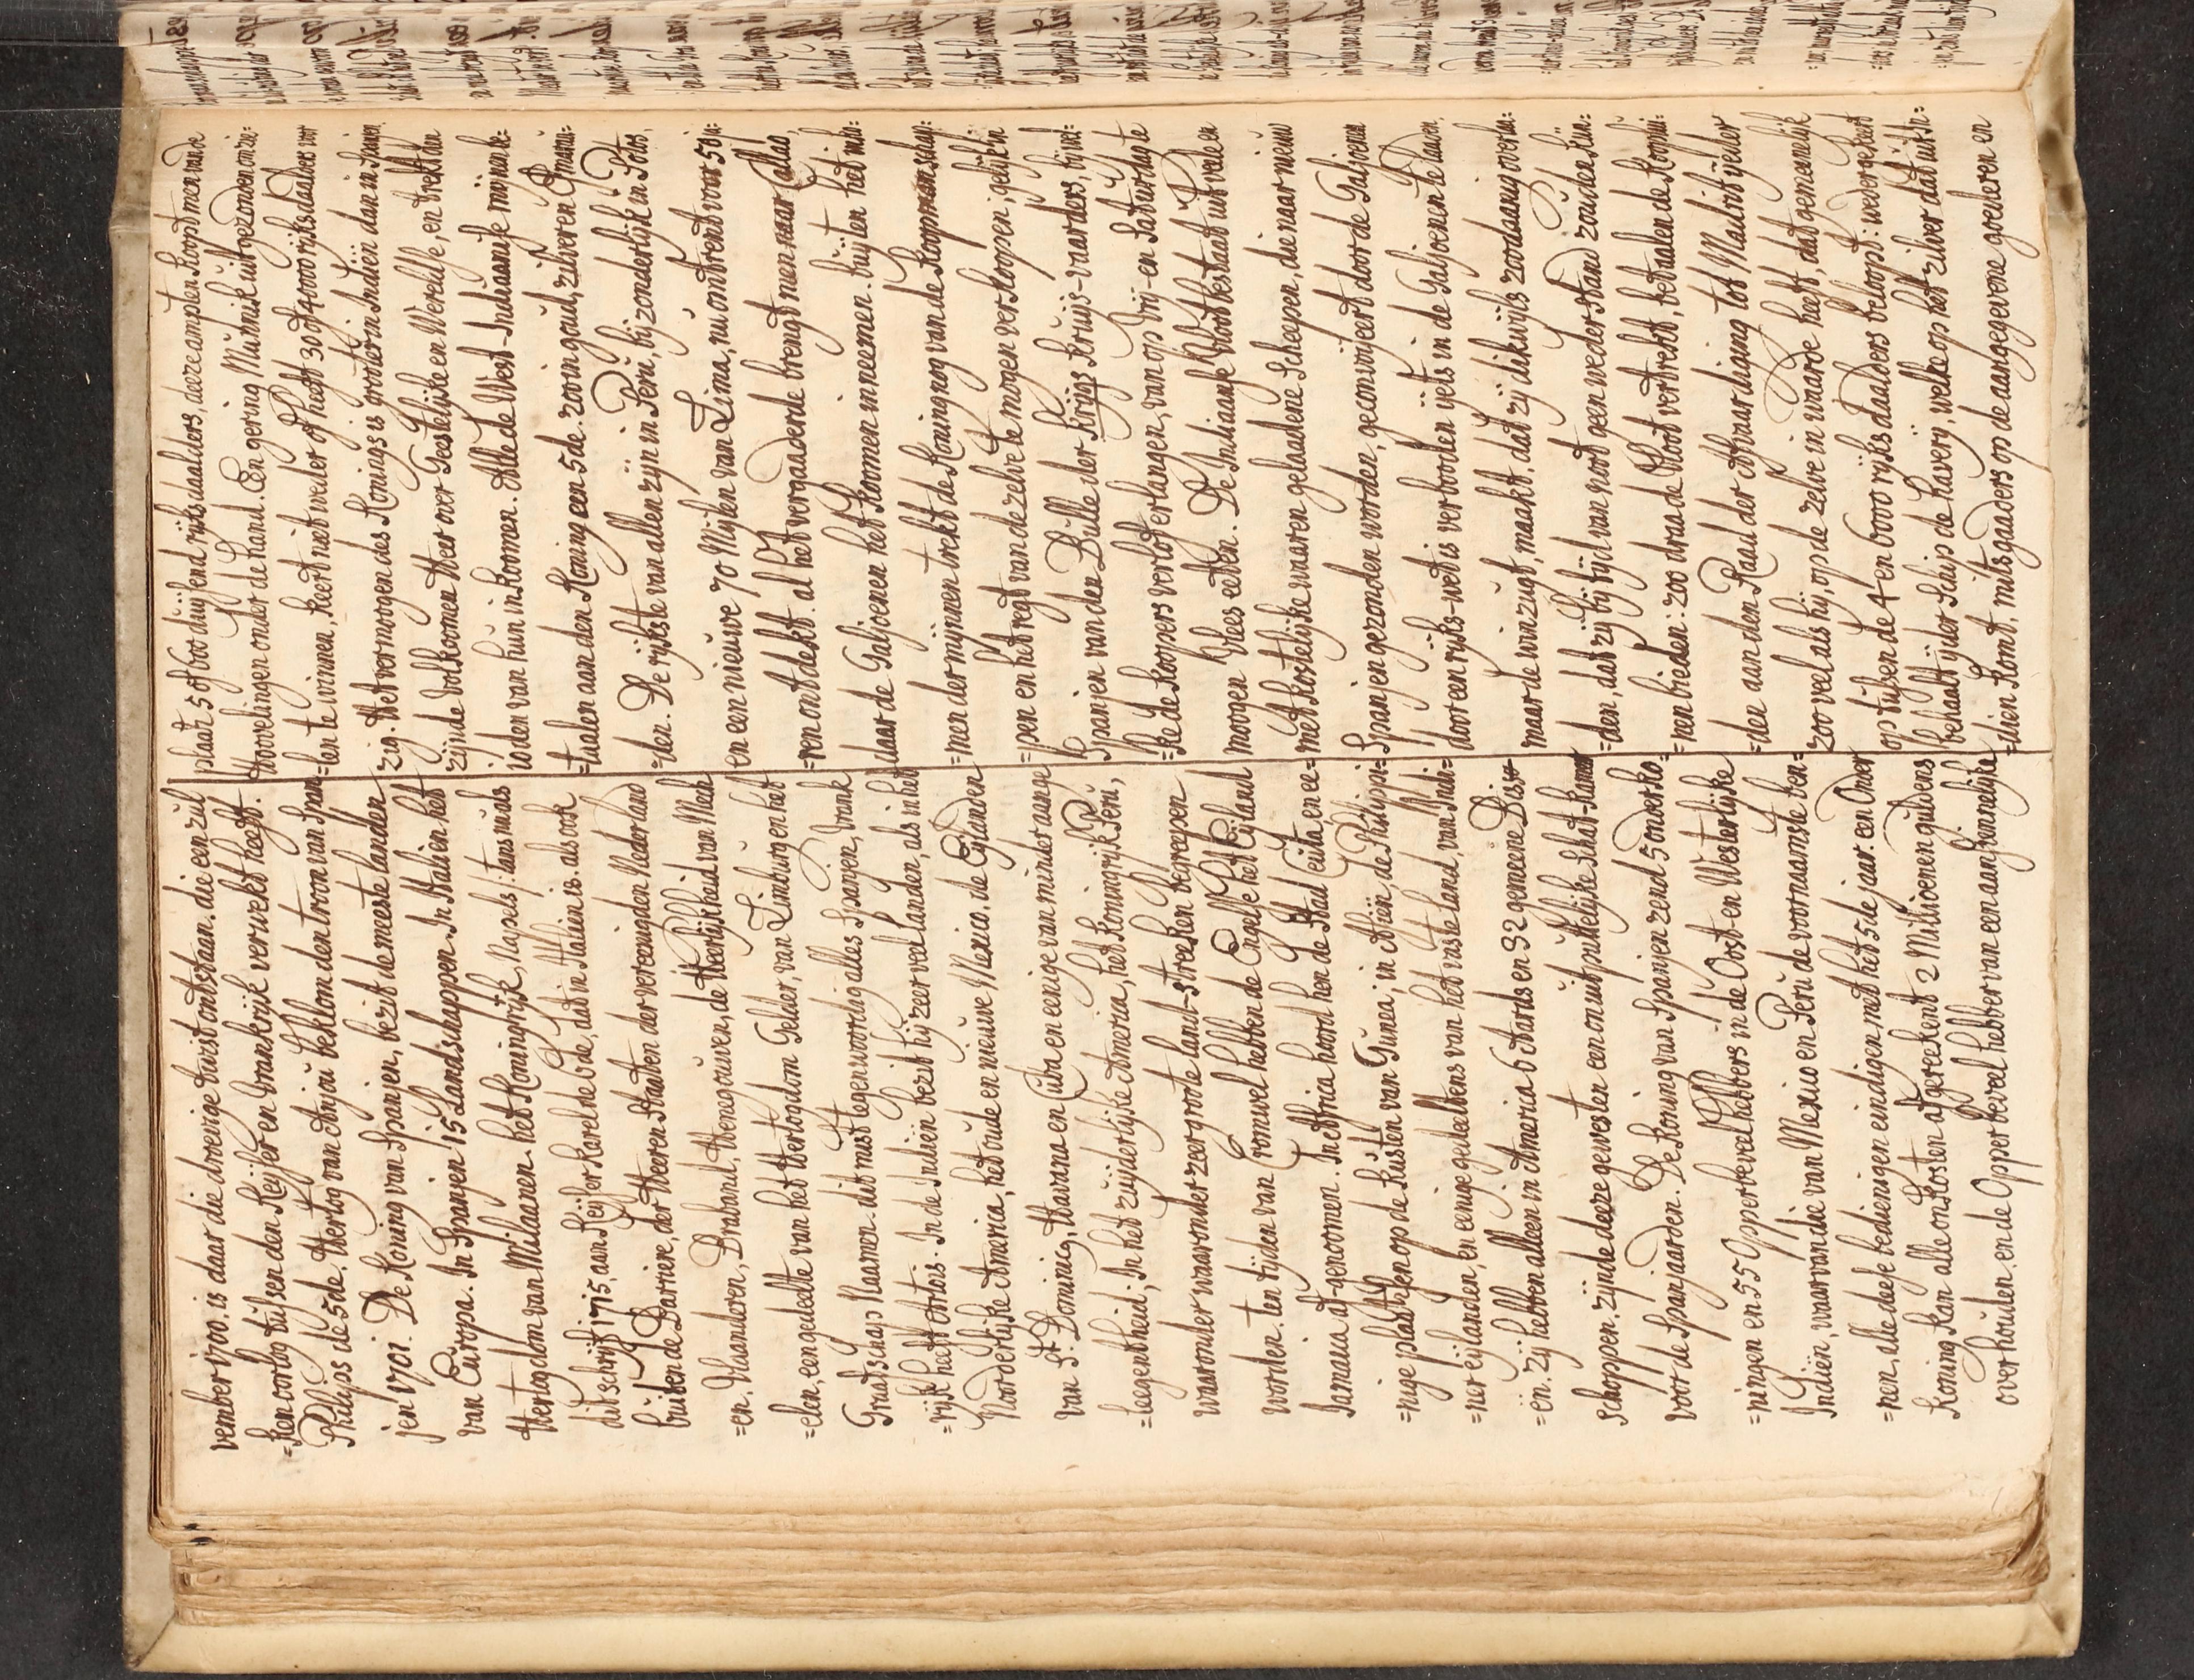 vember 1700. is daar die droevige twist ontstaan. die een zul
=ken oorlog tussen den Keijser en vrankrijk verwekt heeft.
Philips de 5de. Hertog van Anjou beklom den troon van Span
jen 1701. De Koning van Spanjen, bezit de meeste landen
van Europa. In Spanjen 15 Landschappen. In Italien het
Hertogdom van Milaanen. het Koningrijk, Napels: tans mids
dit schrijf 1715, aan Keijser Karel de 6de, dat in Italien is. als ook
buiten de Barriere, der Heeren Staaten der vereenigden Nederland
=en. Vlaanderen, Braband, Henegouwen, de Heerlijkheid van Mech
=elen, een gedeelte van het Hertogdom Gelder, van Limburg en het
Graafschap Naamen. dit mist tegenwoordig alles Spanjen, vrank
=rijk heeft Artois. In de Indiën bezit hij zeer veel landen, als in het
Noorderlijke America, het oude en nieuwe Mexico, de Eylanden
van St. Dominig, Havana en Cuba en eenige van minder aange
=leegentheid; In het zuijderlijke America, het Koningrijk Peru,
waaronder zeer groote land-streeken begreepen
worden. ten tijden van Cromwel hebben de Engelsche het Eijland
Jamaica af-genoomen. In Affrica hoord hen de Stad Ceuta, en ee=
=nige plaatsen op de Kusten van Gunea; in Asiën, de Philippi=
=ner eijlanden, en eenige gedeeltens van het vaste land, van Indi=
=ën. zij hebben alleen in America 6 Aards en 32 gemeene Biss
schoppen. zijnde deeze gewesten een onuitputtelijke Schat-kamer
voor de Spanjaarden. De Koning van Spanjen zend 5 onderko=
=ningen en 55 Opperbevelhebbers in de Oost- en Westerlijke
Indiën, waarvan die van Mexico en Peru de voornaamste ben=
=nen, alle deese bedienigen eindigen met het 5de jaar. een Onder
Koning kan alle onkosten afgereekent 2 Millioenen guldens
overhouden. en de Opper bevel hebber van een aanzienelijke
plaats 5 of 600 duijsend rijksdaalders, deeze ampten koopt men van de
Hoovelingen onder de hand. Een gering Munnik uitgezonden om zie=
=len te winnen, keert niet weder of heeft 30 of 40000 rijksdaalders voor
zig. Het vermoogen des Konings is grooter in Indiën dan in Spanjen
zijnde volkoomen Heer over Geestelijke en Wereldse, en trekt den
ioden van hun inkoomen. Alle de West-Indiaanse mijnen be=
=taalen aan den Koning een 5de. zoo in goud, zilver en Smarag=
=den. De rijkste van allen zijn in Peru, bijzonderlijk in Potosi,
en een nieuwe 70 Mijlen van Lima, nu ontrent voor 50 ja=
=ren ontdekt. al het vergaaderde brengt men naar Callao,
daar de Galjoenen het koomen inneemen. buijten het inko=
=men der mijnen trekt de Koning nog van de Koopmanschap=
=pen en het regt van dezelve te mogen verkoopen; gelijk in
Spanjen van den Bulle der Kruijs-vaarders, bij wel=
=ke de koopers verlof erlangen, van op Vrij- en Saturdage
moogen vlees eeten. De Indiaanse Vloot bestaat uit veele en
met kostelijke waaren gelaadene Scheepen, die naar nieuw
Spanjen gezonden worden, geconvoijeert door de Galjoenen
door een rijks-wet is verbooden ijets in de Galjoenen te laaden.
maar de winzugt, maakt, dat zij dikwijls zoodaanig overla=
=den, dat zij bij tijd van noot geen wederstand zouden kün=
=nen bieden: zoo dra de Vloot vertrekt, betaalen de Koopli=
=den aan den Raad der Affvaardiging tot Madrit ijeder
zoo veel als hij, op de zelve in waarde heeft, dat gemeenelijk
op tussen de 4 en 6000 rijks daalders beloopt: wedergekeert
behaalt ijder Schip de Haverij, welke op het zilver dat uit In=
=dien komt, mitsgaaders op de aangegevene goederen en